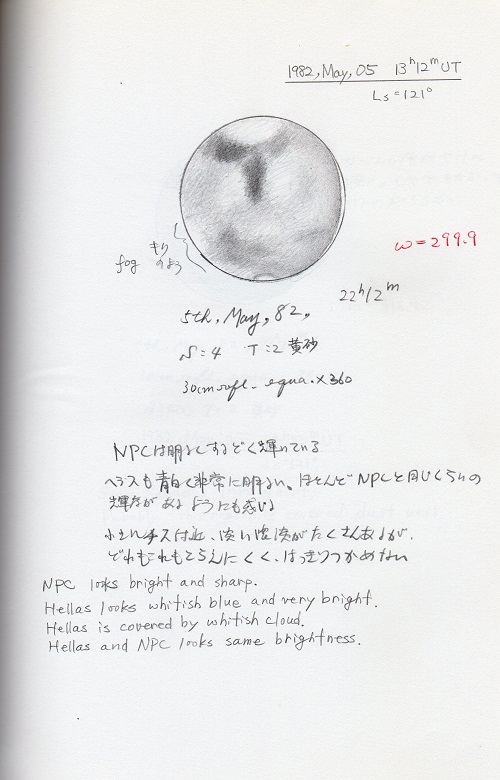 1982, May, 05 13h12m UT
Ls=121°
ω=299.9
fog きり
のよう
22h12m
5th, May, 82,
S:4 T:2 黄砂
30cm refl- equa. ×360
NPCは明るくするどく輝いている
ヘラスも青白く非常に明るい、ほとんどNPCと同じくらいの
輝きがあるようにも感じる
付近、淡い濃淡がたくさんあるが、
どれもこれもとらえにくく、はっきりつかめない
NPC looks bright and sharp.
Hellas looks whitish blue and very bright.
Hellas is covered by whitish cloud.
Hellas and NPC looks same brightness.